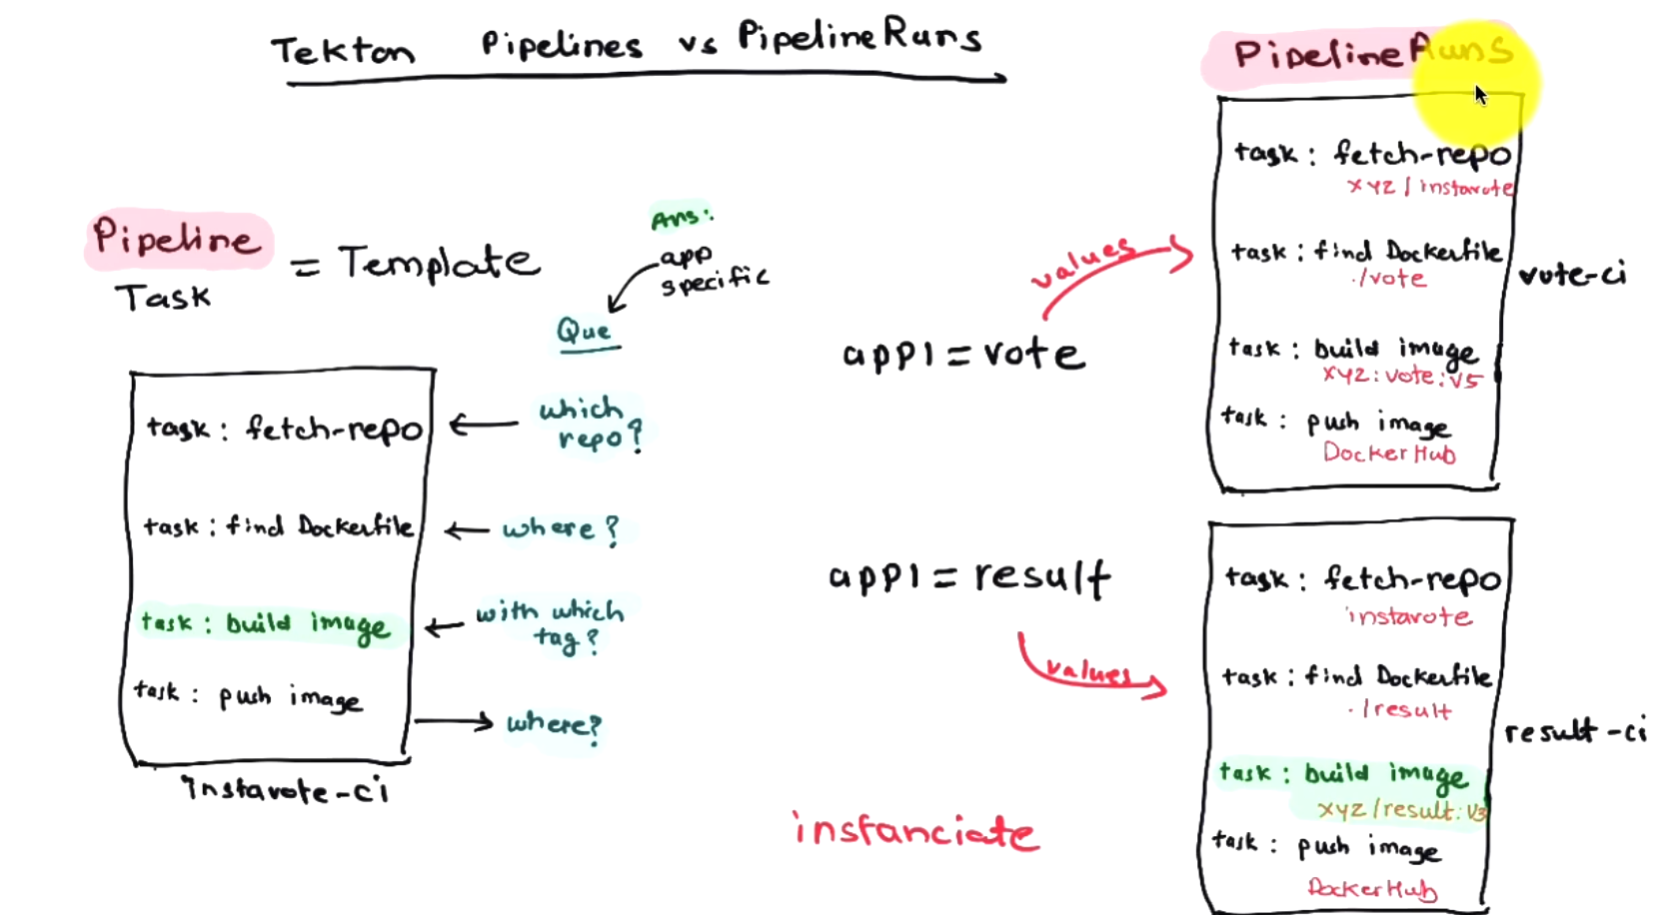 Tekton Pipelines vs PipelineRuns
Pipeline
Task
= Template
Ans:
app
specific
Que
task: fetch-repo
which
repo?
task: find Dockerfile
where?
task: build image
with which
tag?
task: push image
where?
instavote-ci
app1 = vote
values
app1 = result
values
instanciate
PipelineRuns
task: fetch-repo
xyz/instavote
task: find Dockerfile
./vote
task: build image
xyz:vote:v5
task: push image
DockerHub
vote-ci
task: fetch-repo
instavote
task: find Dockerfile
./result
task: build image
xyz/result:v3
task: push image
DockerHub
result-ci